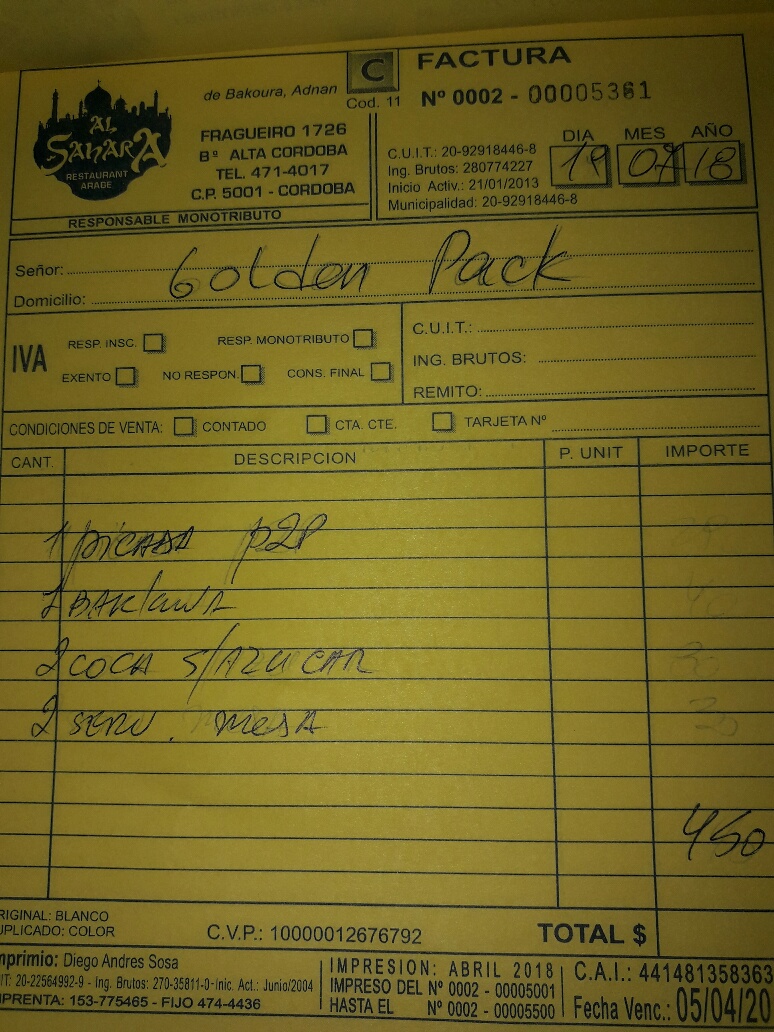 AL SAHARA
RESTAURANT
ARABE
de Bakoura, Adnan
FRAGUEIRO 1726
Bº ALTA CORDOBA
TEL. 471-4017
C.P. 5001 - CORDOBA
RESPONSABLE MONOTRIBUTO
C
Cod. 11
FACTURA
Nº 0002 - 00005361
C.U.I.T.: 20-92918446-8
Ing. Brutos: 280774227
Inicio Activ.: 21/01/2013
Municipalidad: 20-92918446-8
DIA MES AÑO
19 07 18
Señor: Golden Pack
Domicilio:
IVA
RESP. INSC. RESP. MONOTRIBUTO
EXENTO NO RESPON. CONS. FINAL
C.U.I.T.:
ING. BRUTOS:
REMITO:
CONDICIONES DE VENTA: CONTADO CTA. CTE. TARJETA Nº
CANT. DESCRIPCION P. UNIT IMPORTE
1 PICADA P2P
BAKlawA
2 COCA S/AZUCAR
2 SERV. MESA
450
RIGINAL: BLANCO
UPLICADO: COLOR
C.V.P.: 10000012676792
TOTAL $
mprimio: Diego Andres Sosa
IT: 20-22564992-9 - Ing. Brutos: 270-35811-0-Inic. Act.: Junio/2004
MPRENTA: 153-775465 - FIJO 474-4436
IMPRESION: ABRIL 2018
IMPRESO DEL Nº 0002 - 00005001
HASTA EL Nº 0002 - 00005500
C.A.I.: 441481358363
Fecha Venc.: 05/04/20